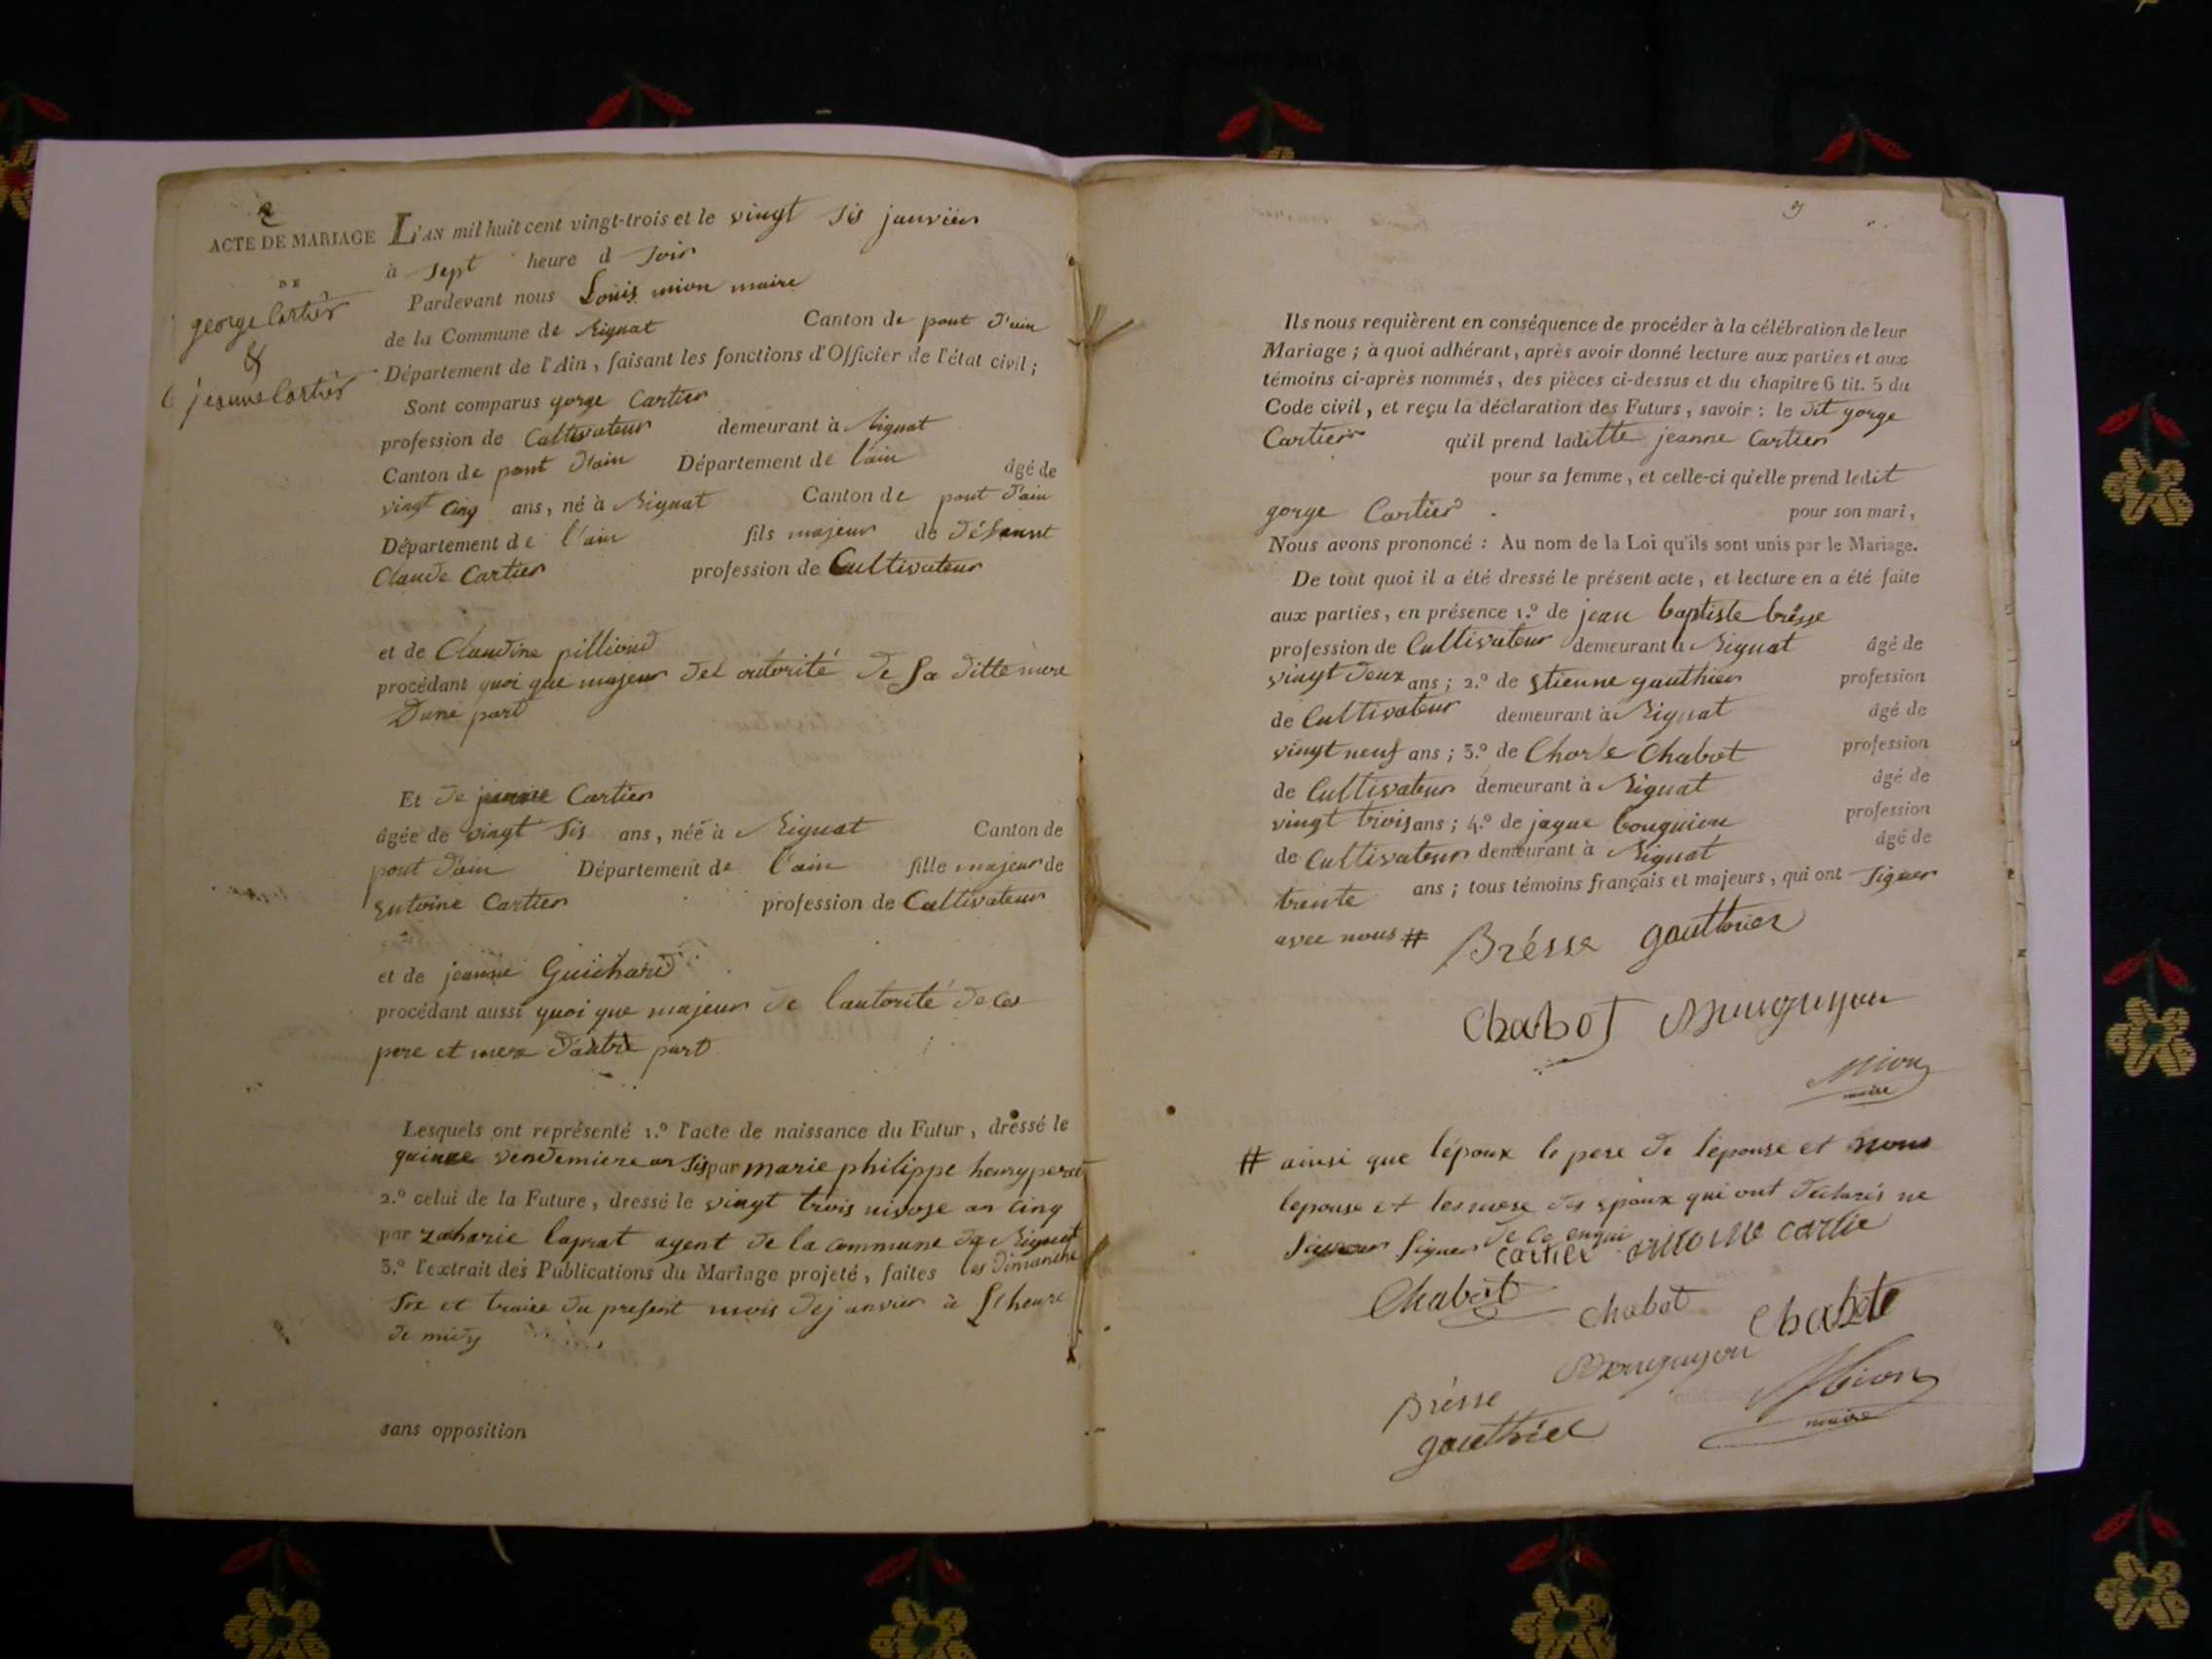 2
ACTE DE MARIAGE
DE
george Cartier
&
jeanne Cartier
L'AN mil huit cent vingt-trois et le vingt sis janvier
à sept heure d soir
Pardevant nous Louis mion maire
de la Commune de Rignat Canton de pont d'ain
Département de l'Ain, faisant les fonctions d'Officier de l'état civil;
Sont comparus gorge Cartier
profession de Cultivateur demeurant à Rignat
Canton de pont d'ain Département de l'ain âgé de
vingt cinq ans, né à Rignat Canton de pont d'ain
Département de l'ain fils majeur de défeunt
Claude Cartier profession de Cultivateur
et de Claudine pilliond
procédant quoi que majeur del autorité de sa ditte mere
D'une part
Et de jeanne Cartier
âgée de vingt sis ans, née à Rignat Canton de
pont d'ain Département de l'ain fille majeur de
entoine Cartier profession de Cultivateur
et de jeanne Guichard
procédant aussi quoi que majeur de l'autorité de ces
pere et mere d'autre part
Lesquels ont représenté 1.º l'acte de naissance du Futur, dressé le
quinze vendemiere an sis par marie philippe henry peret
2.º celui de la Future, dressé le vingt trois nivose an cinq
par zacharie laprat agent de la commune de Rignat
3.º l'extrait des Publications du Mariage projeté, faites les dimanche
six et traise du present mois dejanvier à l'heure
de midy
sans opposition
3
Ils nous requièrent en conséquence de procéder à la célébration de leur
Mariage; à quoi adhérant, après avoir donné lecture aux parties et aux
témoins ci-après nommés, des pièces ci-dessus et du chapitre 6 tit. 5 du
Code civil, et reçu la déclaration des Futurs, savoir: le dit gorge
Cartier qu'il prend laditte jeanne Cartier
pour sa femme, et celle-ci qu'elle prend ledit
gorge Cartier pour son mari,
Nous avons prononcé: Au nom de la Loi qu'ils sont unis par le Mariage.
De tout quoi il a été dressé le présent acte, et lecture en a été faite
aux parties, en présence 1.º de jean baptiste brésse
profession de Cultivateur demeurant à Rignat âgé de
vingt deux ans; 2.º de Etienne gauthier profession
de Cultivateur demeurant à Rignat âgé de
vingt neuf ans; 3.º de Charle Chabot profession
de Cultivateur demeurant à Rignat âgé de
vingt trois ans; 4.º de jaque bouguion profession
de Cultivateur demeurant à Rignat âgé de
trente ans; tous témoins français et majeurs, qui ont signer
avec nous #
Brésse gauthier
Chabot
Mion
maire
# ainsi que l'époux le pere de l'epouse et nous
lepouse et les mere des epoux qui ont declarés ne
signer de ce enqui
cartier antoine cartie
Chabot chabot
Chabot
Brésse
gauthier
Mion
maire